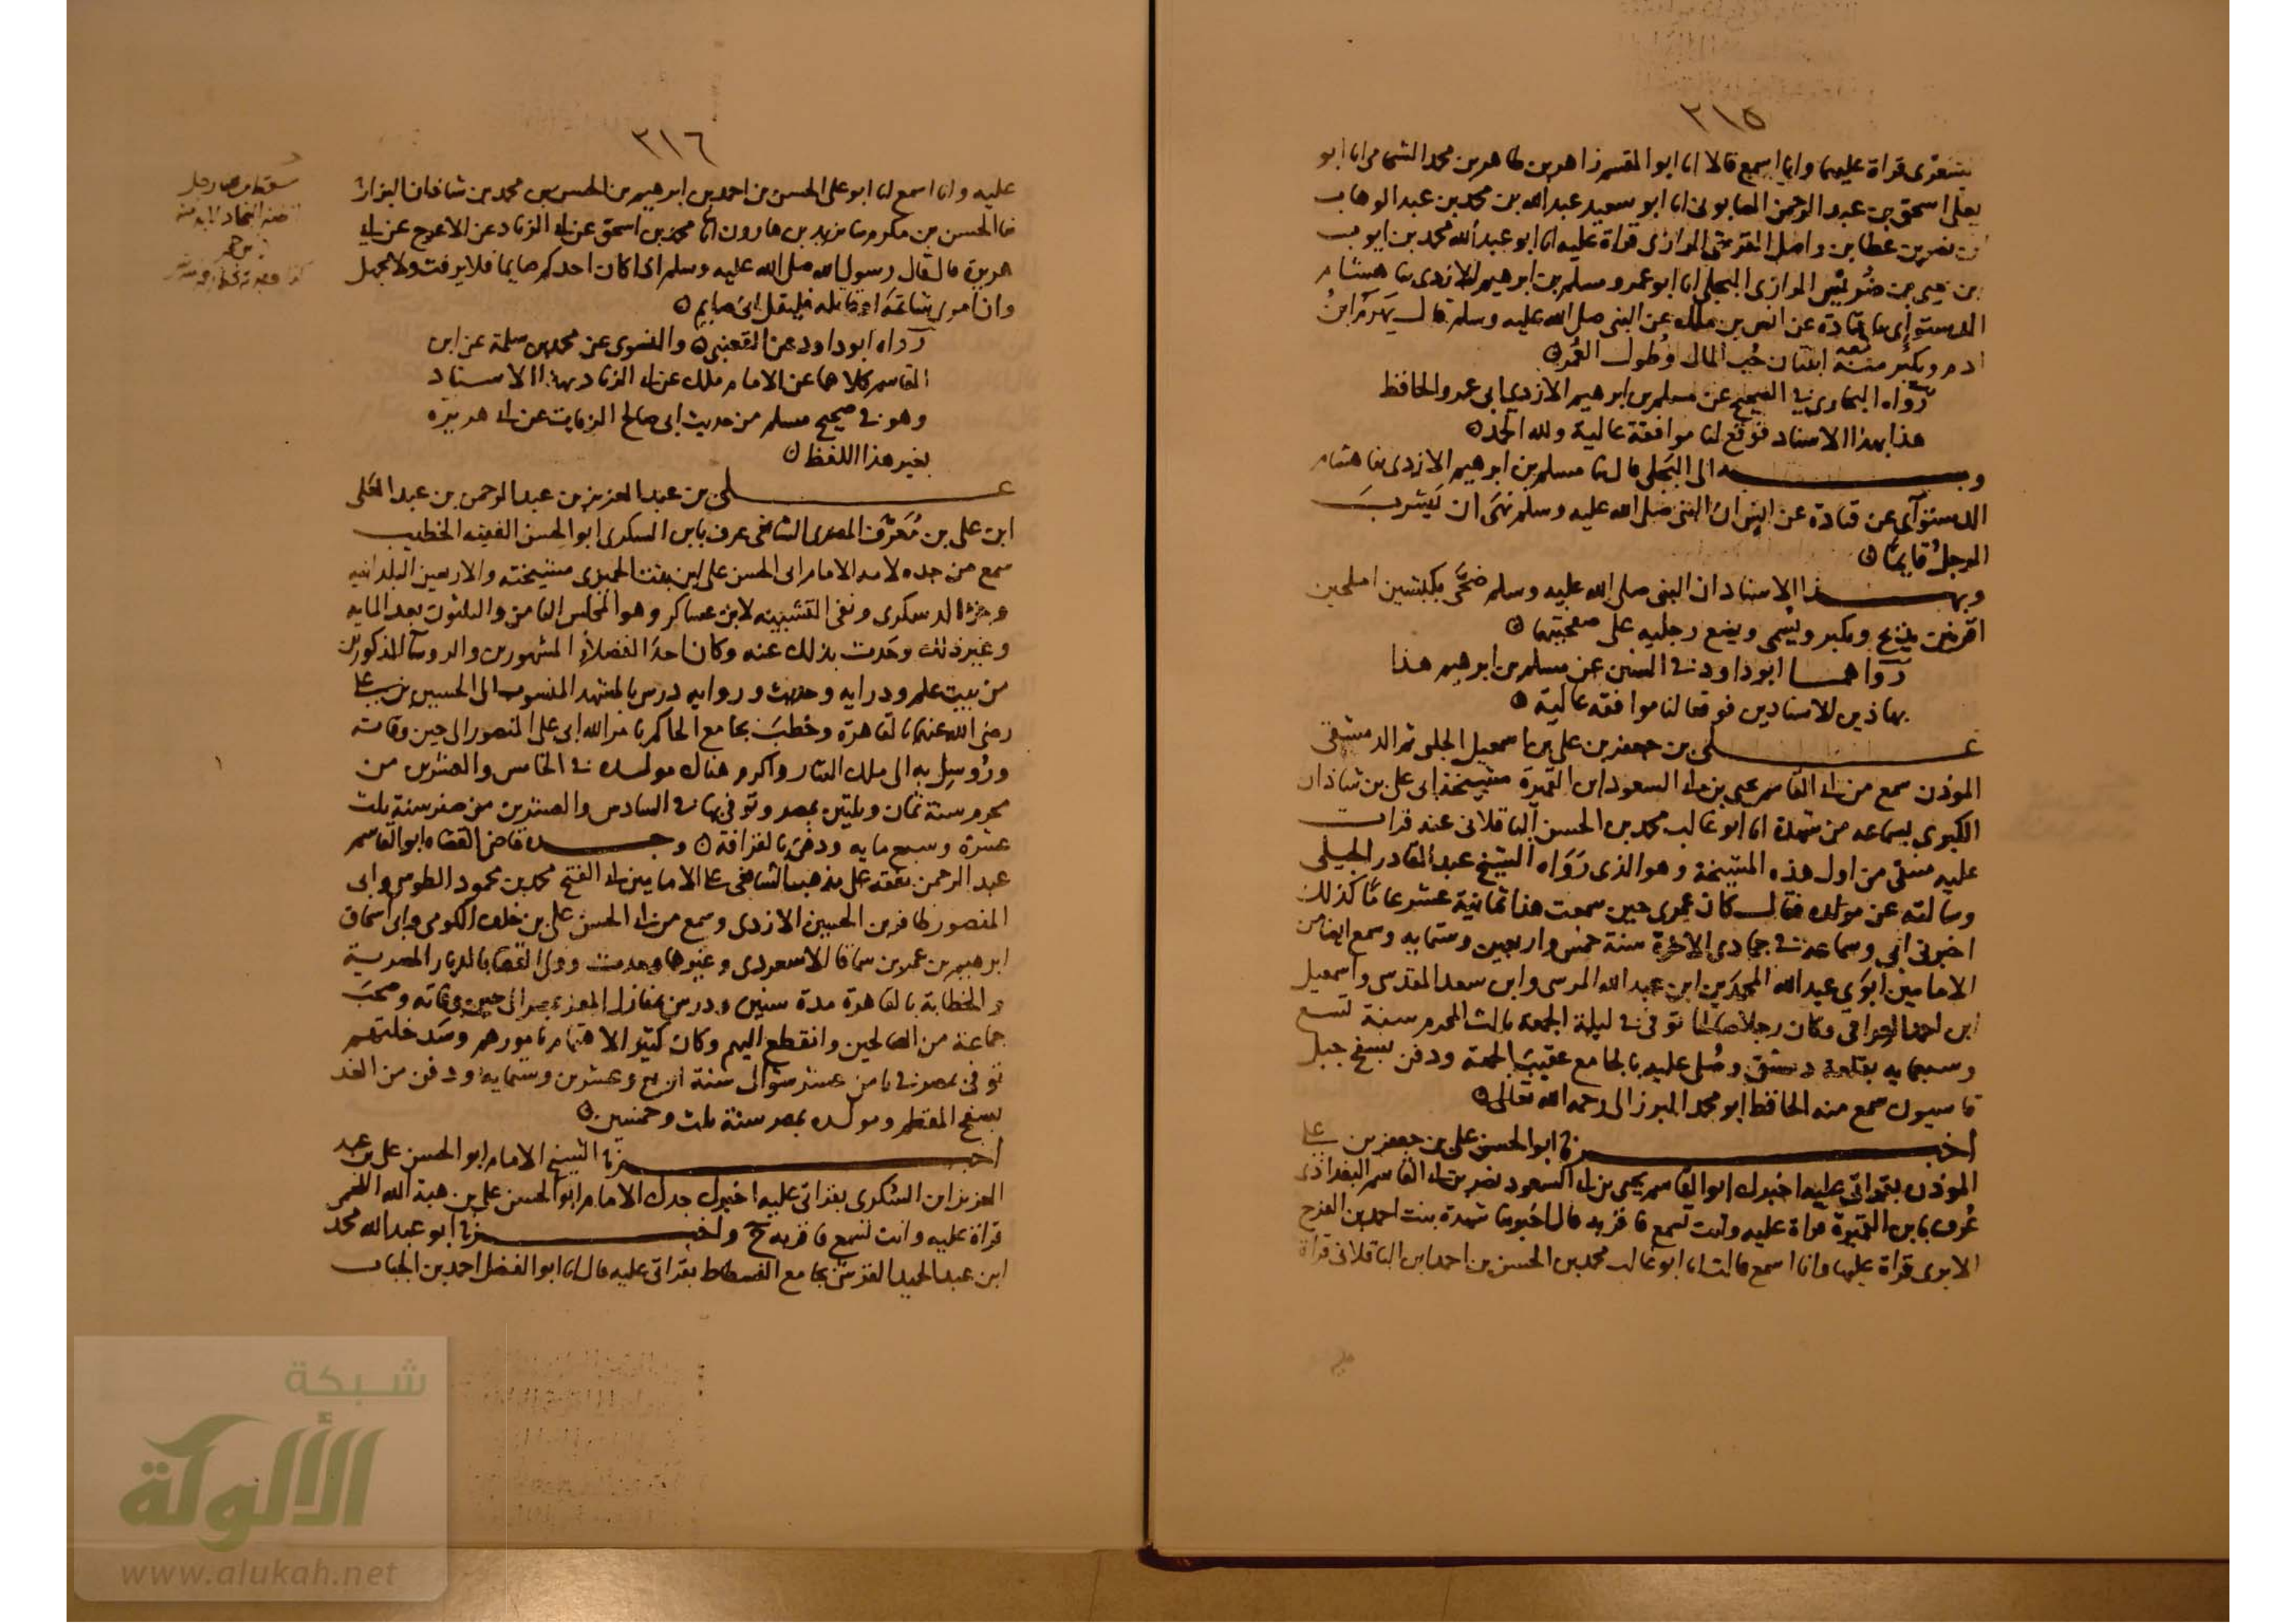 ٣١٥
قراة عليهما وانا اسمع قالا انا ابو القسم زاهر بن طاهر بن محمد الشحامى انا ابو
يعلى اسحق بن عبد الرحمن الصابونى انا ابو سعيد عبد الله بن محمد بن عبد الوهاب
بن نصير بن عطا بن واصل القرشى الرازى قراة عليه انا ابو عبد الله محمد بن ايوب
بن يحيى بن ضريس الرازى البجلى انا ابو عمرو مسلم بن ابرهيم الازدى ثنا هشام
الدستوائى ثنا قتادة عن انس بن ملك عن النبى صلى الله عليه وسلم قال يهرم ابن
ادم ويكبر معه اثنتان حب المال وطول العمر
رواه البخارى فى الصحيح عن مسلم بن ابرهيم الازدى ابى عمرو الحافظ
هذا بهذا الاسناد فوقع لنا موافقة عالية ولله الحمد
وبه الى البجلى قال ثنا مسلم بن ابرهيم الازدى ثنا هشام
الدستوآى عن قتادة عن انس ان النبى صلى الله عليه وسلم نهى ان يشرب
الرجل قايما
وبهذا الاسناد ان النبى صلى الله عليه وسلم ضحى بكبشين املحين
اقرنين يذبح ويكبر ويسمى ويضع رجليه على صفحتهما
رواهما ابو داود فى السنن عن مسلم بن ابرهيم هذا
بهاذين الاسنادين فوقعا لنا موافقة عالية
على بن جعفر بن على بن اسمعيل الحلبى ثم الدمشقى
الموذن سمع من ابى القاسم يحيى بن ابى السعود ابن القميرة مشيخة ابى على بن شاذان
الكبرى بسماعه من شهدة انا ابو غالب محمد بن الحسن الباقلانى عنه قرات
عليه منتقى من اول هذه المشيخة وهو الذى رواه الشيخ عبد القادر الجيلى
وسالته عن مولده فقال كان عمرى حين سمعت هذا ثمانية عشر عاما كذلك
اخبرنى ابى وسماعه فى جمادى الاخرة سنة خمس واربعين وستمايه وسمع ايضا من
الامامين ابوى عبد الله المحمدين ابن عبد الله المرسى وابن سعد المقدسى واسمعيل
ابن احمد العراقى وكان رجلا صالحا توفى فى ليلة الجمعة ثالث المحرم سنة تسع
وسبعمايه بقلعة دمشق وصلى عليه بالجامع عقيب الجمعة ودفن بسفح جبل
قاسيون سمع منه الحافظ ابو محمد البرزالى رحمه الله تعالى
اخبرنا ابو الحسن على بن جعفر بن على
الموذن بقراتى عليه اخبرك ابو القاسم يحيى بن ابى السعود نصر بن ابى القاسم البغدادى
عرف بابن القميرة قراة عليه وانت تسمع فاقر به قال اخبرتنا شهدة بنت احمد بن الفرج
الابرى قراة عليها وانا اسمع قالت انا ابو غالب محمد بن الحسن بن احمد ابن الباقلانى قراة
٣١٦
عليه وانا اسمع انا ابو على الحسن بن احمد بن ابرهيم بن الحسن بن محمد بن شاذان البزاز
ثنا الحسن بن مكرم ثنا يزيد بن هارون انا محمد بن اسحق عن ابى الزناد عن الاعرج عن ابى
هريرة قال قال رسول الله صلى الله عليه وسلم اذا كان احدكم صايما فلا يرفث ولا يجهل
وان امرؤ شاتمه او قاتله فليقل انى صايم
رواه ابو داود عن القعنبى والنسوى عن محمد بن سلمة عن ابن
القاسم كلاهما عن الامام ملك عن ابى الزناد بهذا الاسناد
وهو فى صحيح مسلم من حديث ابى صالح الزيات عن ابى هريرة
بغير هذا اللفظ
على بن عبد العزيز بن عبد الرحمن بن عبد العلى
ابن على بن معرف المصرى الشافعى عرف بابن السكرى ابو الحسن الفقيه الخطيب
سمع من جده لامه الامام ابى الحسن على ابن بنت الجميزى مشيخته والاربعين البلدانيه
وجزء الدسكرى ونفى التشبيه لابن عساكر وهو المجلس الثامن والثلثون بعد المايه
وغير ذلك وحدث بذلك عنه وكان احد الفضلاء المشهورين والروسا المذكورين
من بيت علم ودرايه وحديث وروايه درس بالمشهد المنسوب الى الحسين بن على
رضى الله عنهما بالقاهرة وخطب بجامع الحاكم بامر الله ابى على المنصور الى حين وفاته
وروسل به الى ملك التتار واكرم هناك مولده فى الخامس والعشرين من
محرم سنة ثمان وثلثين بمصر وتوفى بها فى السادس والعشرين من صفر سنة ثلث
عشرة وسبع مايه ودفن بالقرافة وجده قاضى القضاه ابو القاسم
عبد الرحمن تفقه على مذهب الشافعى على الامامين ابى الفتح محمد بن محمود الطوسى وابى
المنصور ظافر بن الحسين الازدى وسمع من ابى الحسن على بن خلف الكومى وابى اسحاق
ابرهيم بن عمر بن سماقا الاسعردى وغيرهما وحدث وولى القضا بالديار المصرية
والخطابة بالقاهرة مدة سنين ودرس بمنازل العز بمصر الى حين وفاته وصحب
جماعة من الصالحين وانقطع اليهم وكان كثير الاهتمام بامورهم وسد خلتهم
توفى بمصر فى ثامن عشر شوال سنة اربع وعشرين وستمايه ودفن من الغد
بسفح المقطم ومولده بمصر سنة ثلث وخمسين
اخبرنا الشيخ الامام ابو الحسن على بن عبد
العزيز ابن السكرى بقراتى عليه اخبرك جدك الامام ابو الحسن على بن هبة الله اللخمى
قراة عليه وانت تسمع فاقر به ح واخبرنا ابو عبد الله محمد
ابن عبد الحميد القرشى بجامع الفسطاط بقراتى عليه قال انا ابو الفضل احمد بن الجباب
شبكة
الألوكة
www.alukah.net